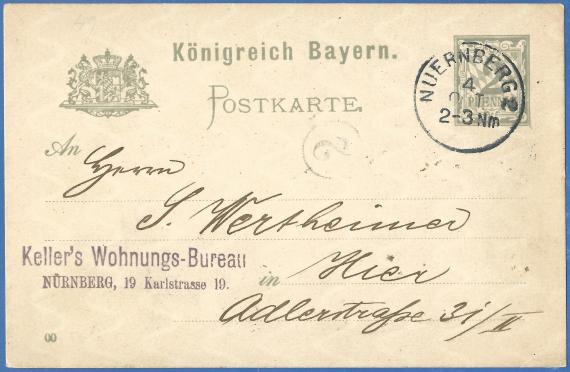 Königreich Bayern.
POSTKARTE.
NUERNBERG 2
4
OCT
2-3 Nm
PFENNIG
2
An
Herrn
S. Wertheimer
Keller's Wohnungs-Bureau
NÜRNBERG, 19 Karlstrasse 19.
in Hier
Adlerstraße 31/II
00